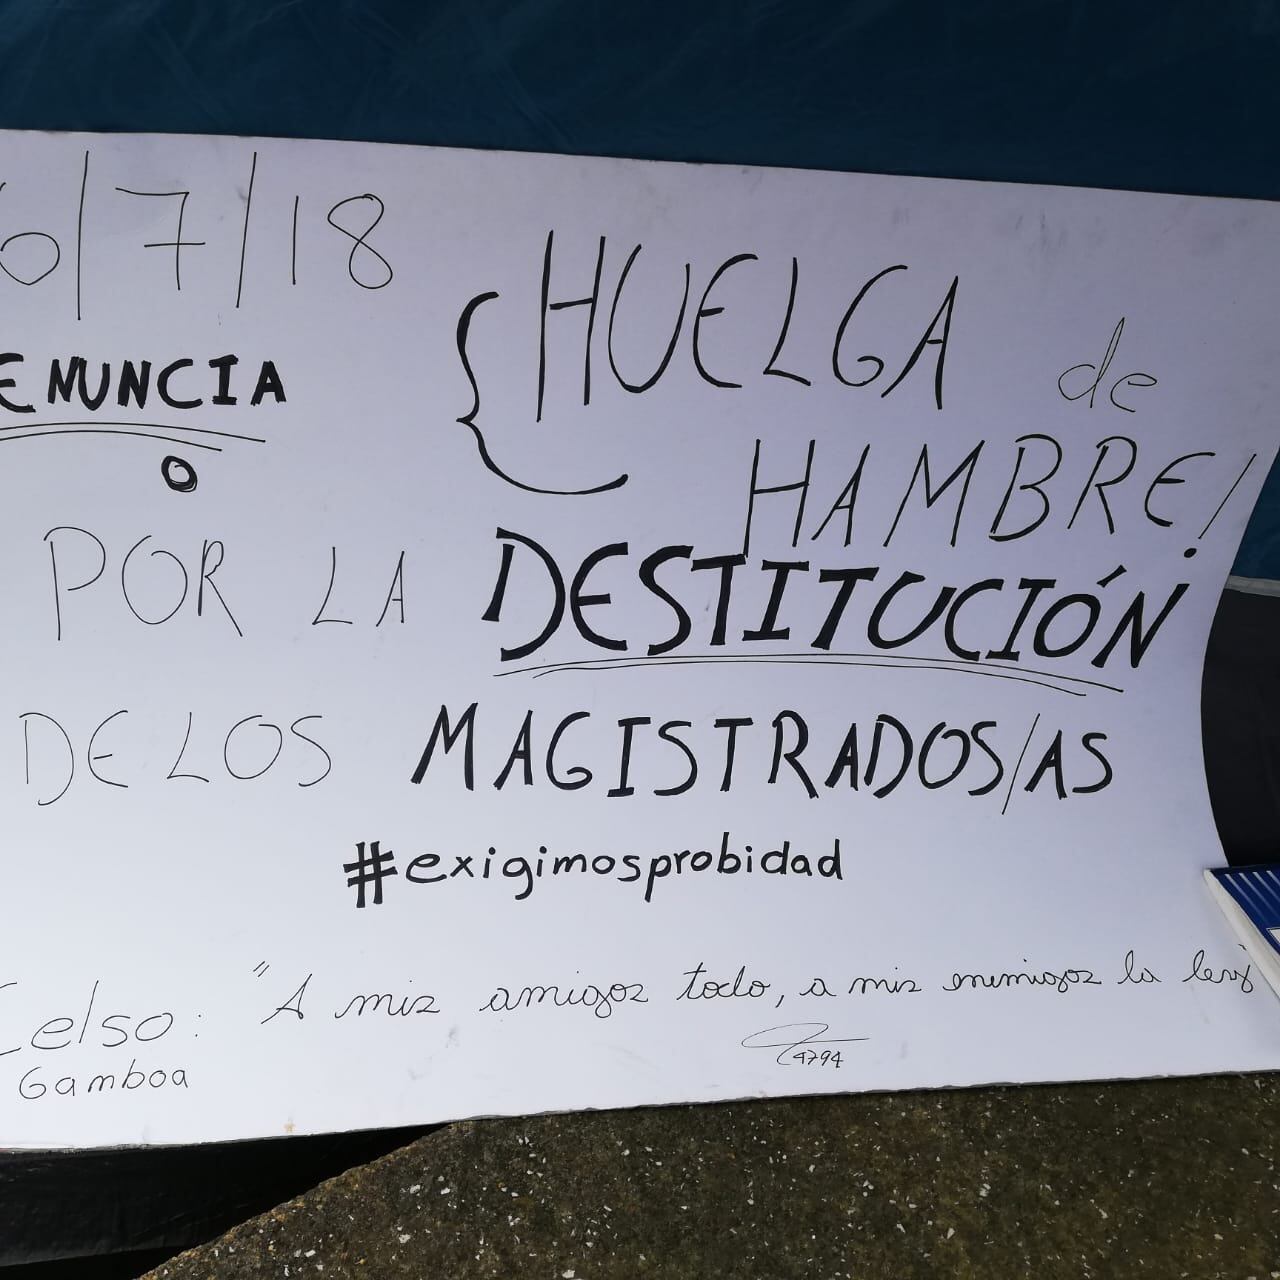 0/7/18
ENUNCIA
o
HUELGA de
HAMBRE!
POR LA DESTITUCIÓN
DE LOS MAGISTRADOS/AS
#exigimosprobidad
Celso: "A mis amigos todo, a mis enemigos la ley"
Gamboa
4794